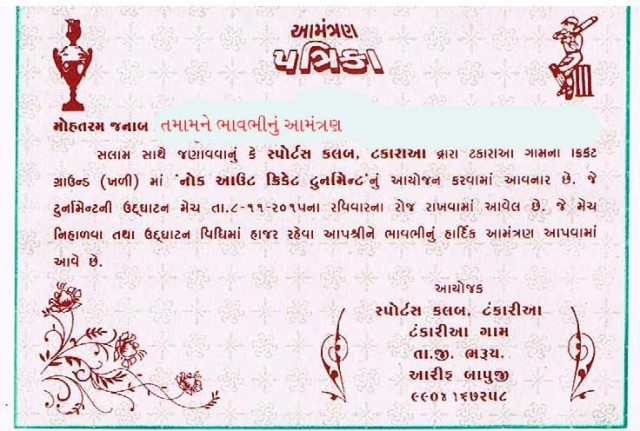 આમંત્રણ
પત્રિકા
મોહતરમ જનાબ તમામને ભાવભીનું આમંત્રણ
સલામ સાથે જણાવવાનું કે સ્પોર્ટસ કલબ, ટંકારીઆ દ્વારા ટંકારીઆ ગામના ક્રિકેટ
ગ્રાઉન્ડ (ખળી) માં 'નોક આઉટ ક્રિકેટ ટુર્નામેન્ટ'નું આયોજન કરવામાં આવનાર છે. જે
ટુર્નામેન્ટની ઉદ્દઘાટન મેચ તા.૮-૧૧-૨૦૧૫ના રવિવારના રોજ રાખવામાં આવેલ છે. જે મેચ
નિહાળવા તથા ઉદ્દઘાટન વિધિમાં હાજર રહેવા આપશ્રીને ભાવભીનું હાર્દિક આમંત્રણ આપવામાં
આવે છે.
આયોજક
સ્પોર્ટસ કલબ, ટંકારીઆ
ટંકારીઆ ગામ
તા.જી. ભરૂચ.
આરીફ બાપુજી
૯૯૦૪૧૬૭૨૫૮